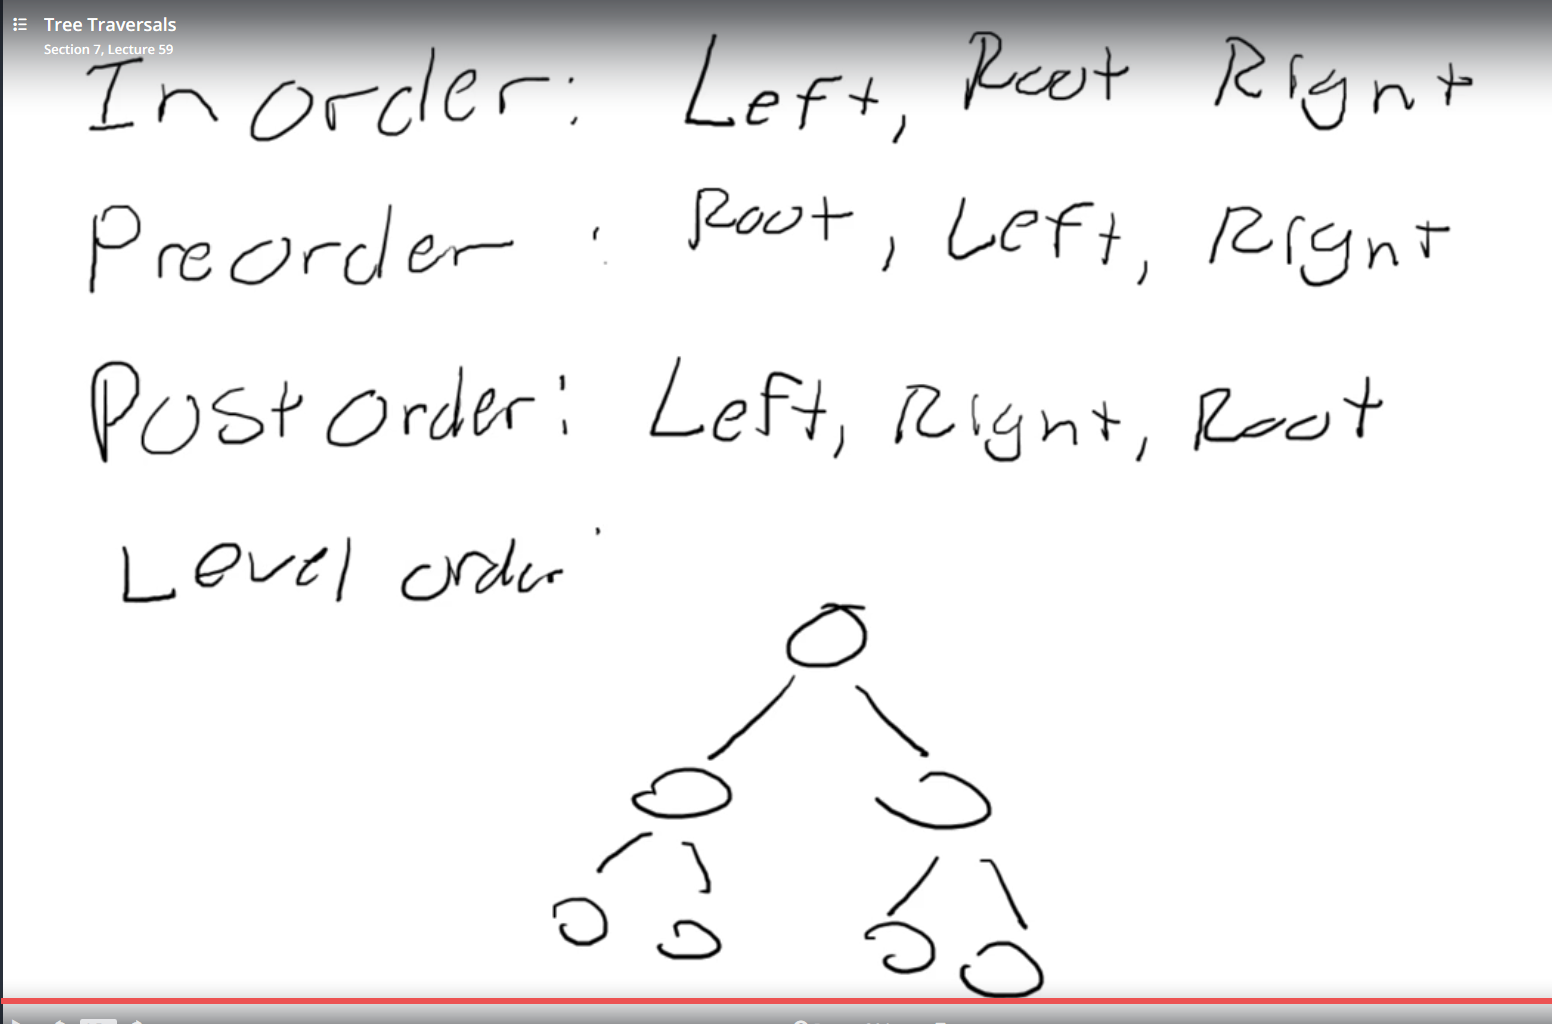 Tree Traversals
Section 7, Lecture 59
Inorder: Left, Root Right
Preorder: Root, Left, Right
Postorder: Left, Right, Root
Level order: